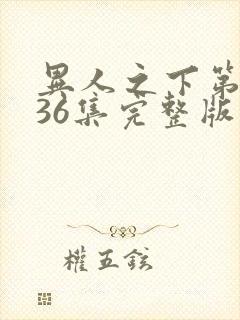 異人之下第
36集完整版
權五鉉